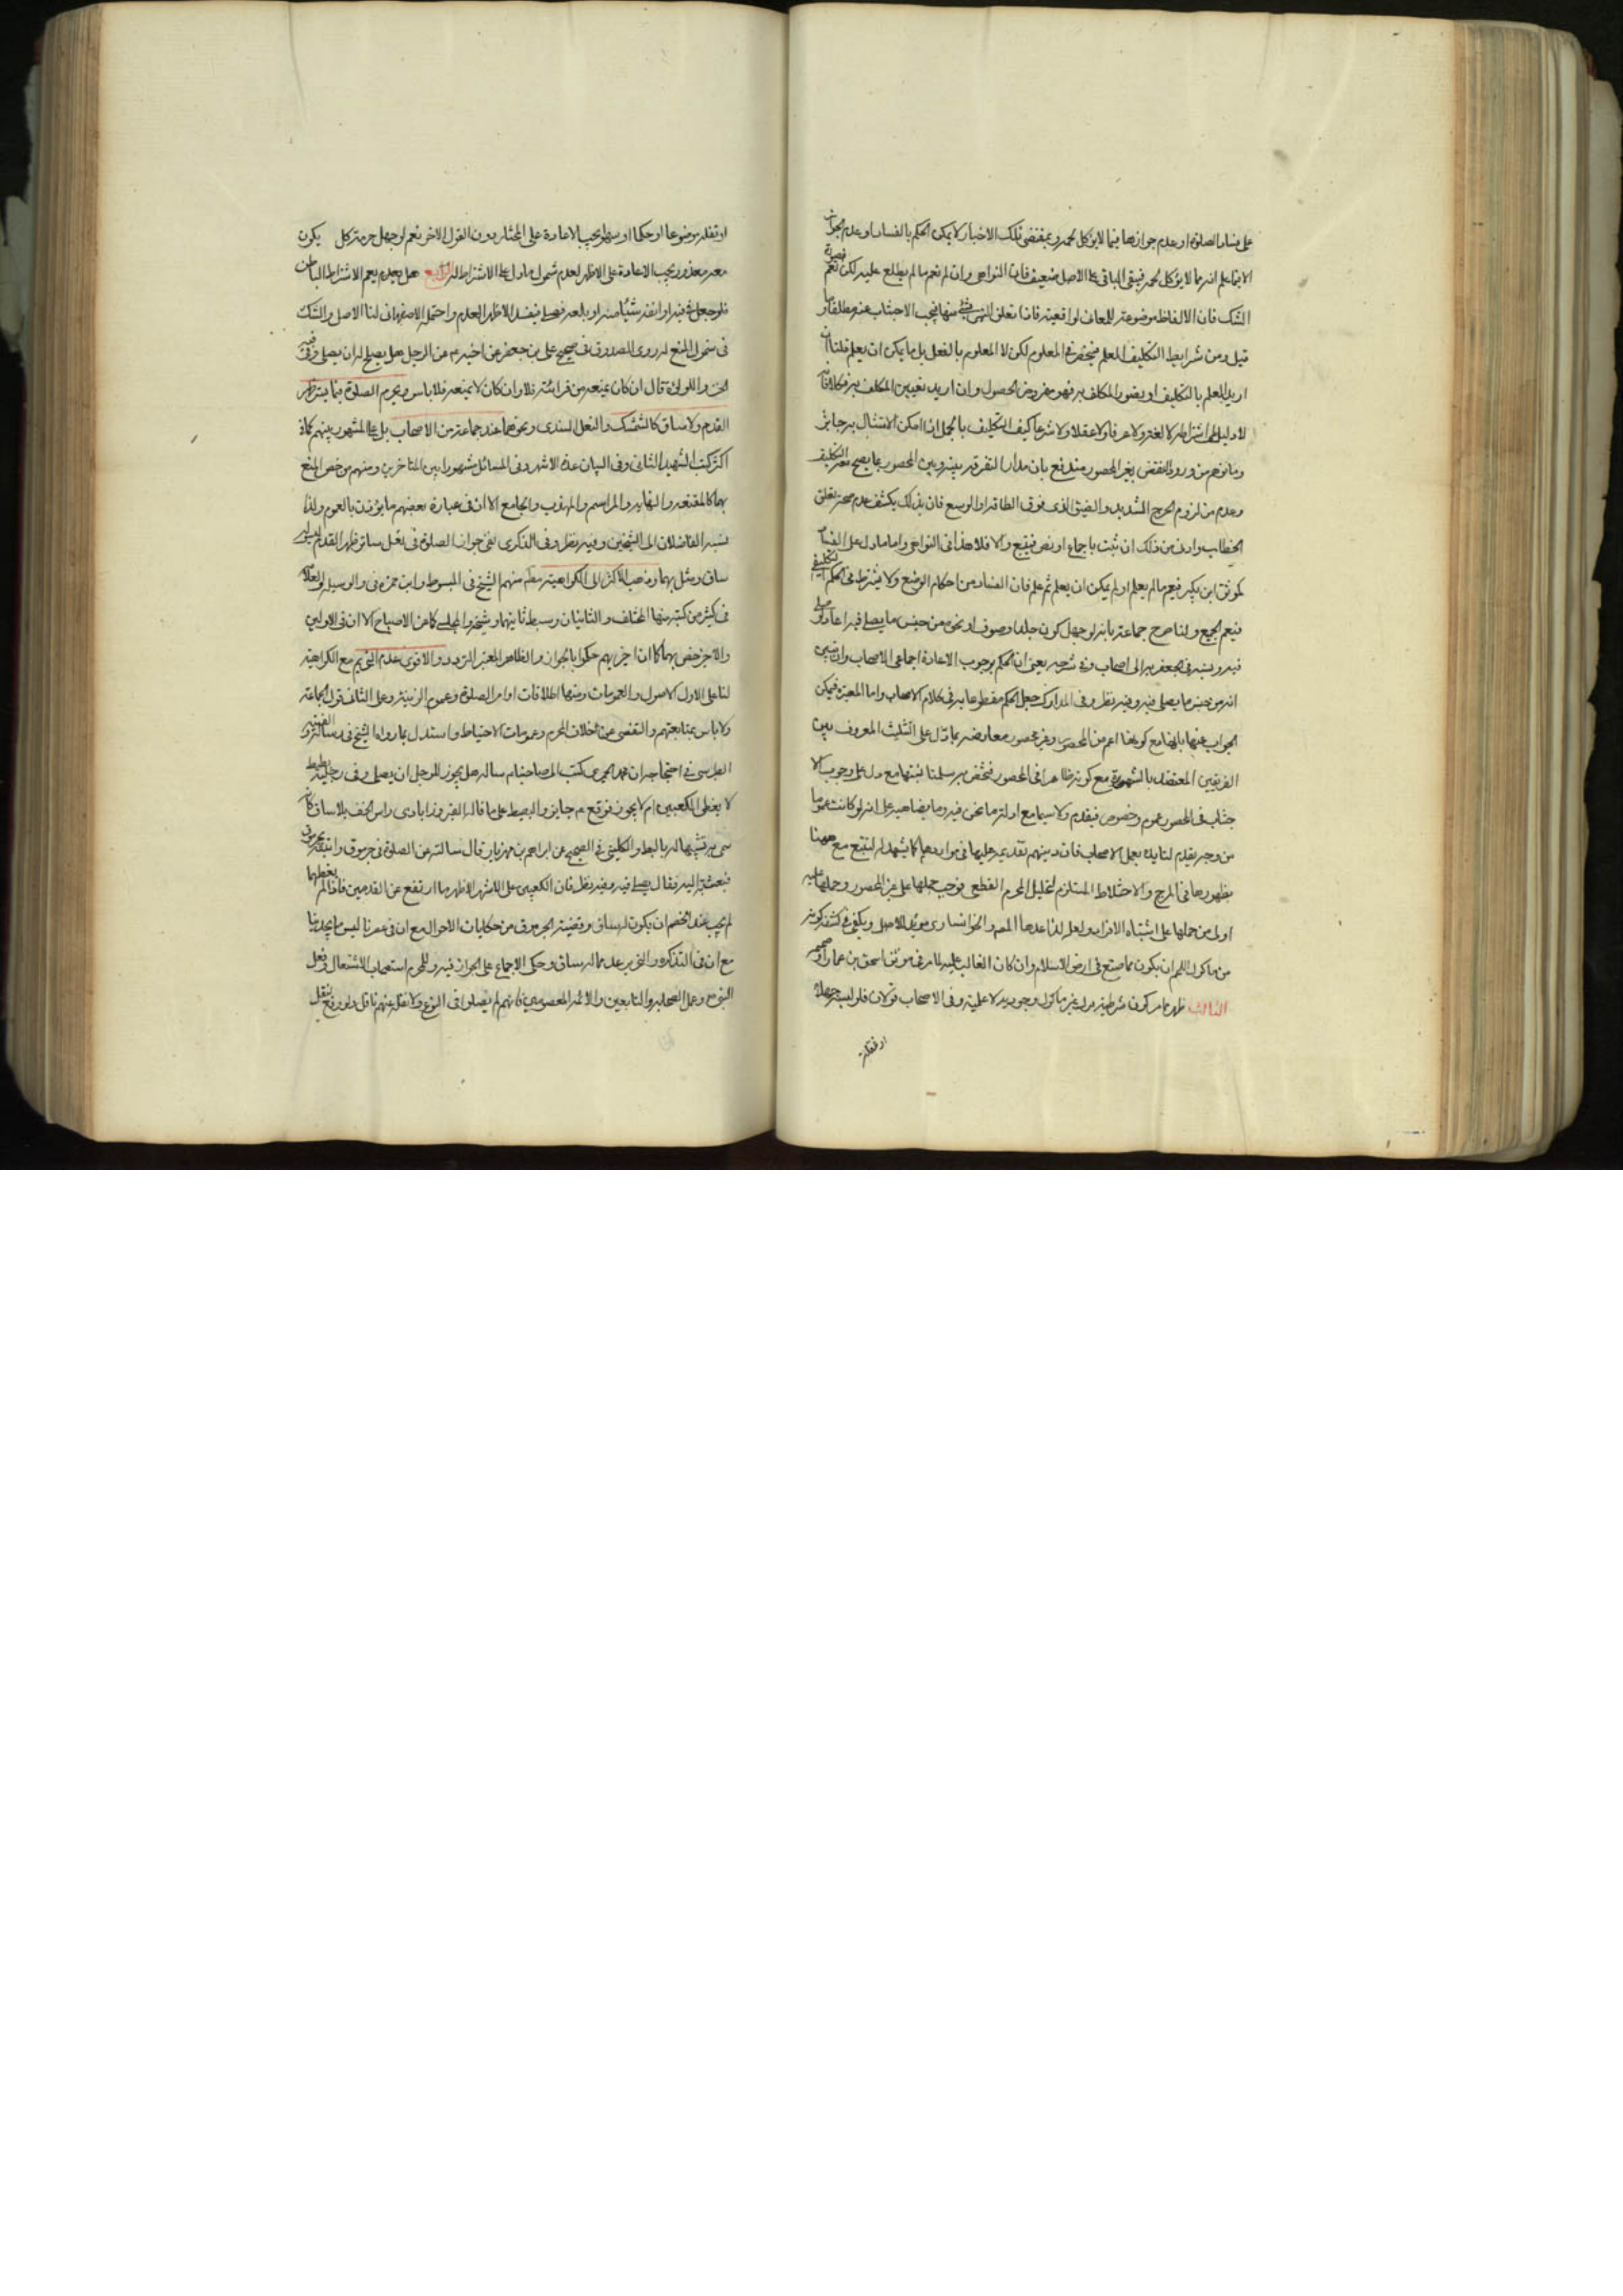 على فساد الصلوة او عدم جوازها فيما لا يؤكل لحمه وبمقتضى تلك الاخبار لا يمكن الحكم بالفساد او عدم الجواز
الا فيما علم انه مما لا يؤكل لحمه فيبقى الباقي على الاصل ضعيف فان النواهي وان لم تعم ما لم يطلع عليه لكن تعم صورة
الشك فان الالفاظ موضوعة للمعاني الواقعية فاذا تعلق النهي بشئ منها فيجب الاجتناب عنه مطلقا و
قيل ومن شرايط التكليف العلم فيختص المعلوم لكن لا المعلوم بالفعل بل ما يمكن ان يعلم قلنا ان
اريد العلم بالتكليف او بصور المكلف به فهو مفروض الحصول وان اريد تعيين المكلف به فكلا فانه
لا دليل على اشتراطه لا لغة ولا عرفا ولا عقلا ولا شرعا كيف التكليف بالمجمل اذا امكن الامتثال به جايز
وما توهم من ورود النقض بغير المحصور مندفع بان مدار التفرقة بينه وبين المحصور بما يصح معه التكليف
وعدمه من لزوم الحرج الشديد والضيق الذي فوق الطاقة او الوسع فان بذلك يكشف عدم صحة تعلق
الخطاب وادن من ذلك ان ثبت باجماع او نص فيتبع والا فلا هذا في النواهي واما ما دل على الفساد
كموثق ابن بكير فيعم ما لم يعلم او لم يمكن ان يعلم ثم علم فان الفساد من احكام الوضع ولا يشترط في الحكم التكليفي
فيعم الجميع ولنا صرح جماعة بانه لو جهل كون جلد او صوف او نحوه من جنس ما يصلى فيه اعاد لو صلى
فيه ونسبه في الجعفرية الى اصحاب وفي شرحه يعني ان الحكم بوجوب الاعادة اجماعي الاصحاب وان تبين
انه من جنس ما يصلى فيه وفيه نظر وفي المدارك جعل الحكم مقطوعا به في كلام الاصحاب واما المعتبرة فيمكن
الجواب عنها بانها مع كونها اعم من المحصور وغير محصور معارضة بما دل على التثليث المعروف بين
الفريقين المعتضد بالشهرة مع كونه ظاهرا في المحصور فتختص به سلمنا لكنها مع دل على وجوب الا
جتناب في المحصور عموم وخصوص فيقدم ولا سيما مع ادلة ما نحن فيه وما يضاهيه على انه لو كانت عموما
من وجه يقدم لتايده بعمل الاصحاب فان دينهم تقديمه عليها في مواردها كما يشهد له التتبع مع ههنا
بظهورها في المزج والاختلاط المستلزم لتحليل الحرم القطعي فوجب حملها على غير المحصور وحملها عليه
اولى من حملها على اشتباه الافراد ولعله لذا عدها المص والخوانساري مؤيد الاصل ويكفي في كشف كونه
من ماكول اللحم ان يكون مما صنع في ارض الاسلام وان كان الغالب عليه لما مر في موثق اسحق بن عمار او صحيحه
الثالث ظهر مما مر كون شرطية عدم غير ماكول وجودية لا علمية وفي الاصحاب قولان فلو لبسه جهلا
او نقله
او نقله موضوعا او حكما او سهوا يجب الاعادة على المختار دون القول الاخر نعم لو جهل حرمته كل يكون
معه معذور يجب الاعادة على الاظهر لعدم شمول ما دل على الاشتراط له الرابع هل يعدم يعم الاشتراط الباطن
فلو جعل في فيه او انفه شيئا منه او بلعه فصلى فيفسد الاظهر العدم واحتمله الاصفهاني لنا الاصل والشك
في شمول المنع له روى الصدوق في صحيح علي بن جعفر عن اخيه م عن الرجل هل يصلح له ان يصلي وفي فيه
الخرز واللؤلؤ قال ان كان يمنعه من قرائته فلا وان كان لا يمنعه فلا باس ويحرم الصلوة فيما يستر ظهر
القدم ولا ساق كالشمشك والنعل السندي ونحوهما عند جماعة من الاصحاب بل على المشهور بينهم كما في
اكثر كتب الشهيد الثاني وفي البيان عده الاشهر وفي المسائل مشهورا بين المتاخرين ومنهم من خص المنع
بهما كالمقنعة والنهاية والمراسم والمهذب والجامع الا ان في عبارة بعضهم ما يؤذن بالعموم ولذا
نسبه الفاضلان الى الشيخين وفيه نظر وفي الذكرى نفى جواز الصلوة في نعل ساتر ظهر القدم ليس له
ساق ومثل بهما وذهب الاكثر الى الكراهية منهم الشيخ في المبسوط وابن حمزة في الوسيلة والعلامة
في كثير من كتبه منها المختلف والثانيان وسبط ثانيهما وشيخه والمجلسي كما عن الاصباح الا ان في الاولين
والاخر خص بهما كما ان اخريهم حكموا بالجواز والظاهر المعتبر التردد والاقوى عدم التحريم مع الكراهية
لنا على الاول الاصول والعمومات ومنها اطلاقات اوامر الصلوة وعموم الزينة وعلى الثاني قول الجماعة
ولا باس بمتابعتهم والتفصي عن خلاف الحرم وعمومات الاحتياط واستدل بما رواه الشيخ في رسالة الغيبة و
الطبرسي في احتجاجه ان محمد الحميري كتب الى صاحبنا م ساله هل يجوز للرجل ان يصلي وفي رجليه بطيط
لا يغطي الكعبين ام لا يجوز فوقع م جايز والبطيط على ما قاله الفيروزابادي راس الخف بلا ساق كأنه
سمي به تشبيها له بالبط والكليني في الصحيح عن ابراهيم بن مهزيار قال سالته عن الصلوة في جرموق واتيته بجرموق
فبعثت به اليه فقال يصلى فيه وفيه نظر فان الكعبين على الاشهر الاظهر ما ارتفع عن القدمين فاذا لم يغطهما
لم يجب عند الخصم ان يكون له ساق وقضية الجرموق من حكايات الاحوال مع ان في عصرنا ليس ما يجد بنا
مع ان في التذكره والتحرير عده مما له ساق وحكى الاجماع على الجواز فيه وللحرم استصحاب الاشتغال وفعل
النبي ص وعمل الصحابة والتابعين والائمة المعصومين فانهم لم يصلوا في النوع ولا نقل عنهم ناقل ولو وقع لنقل